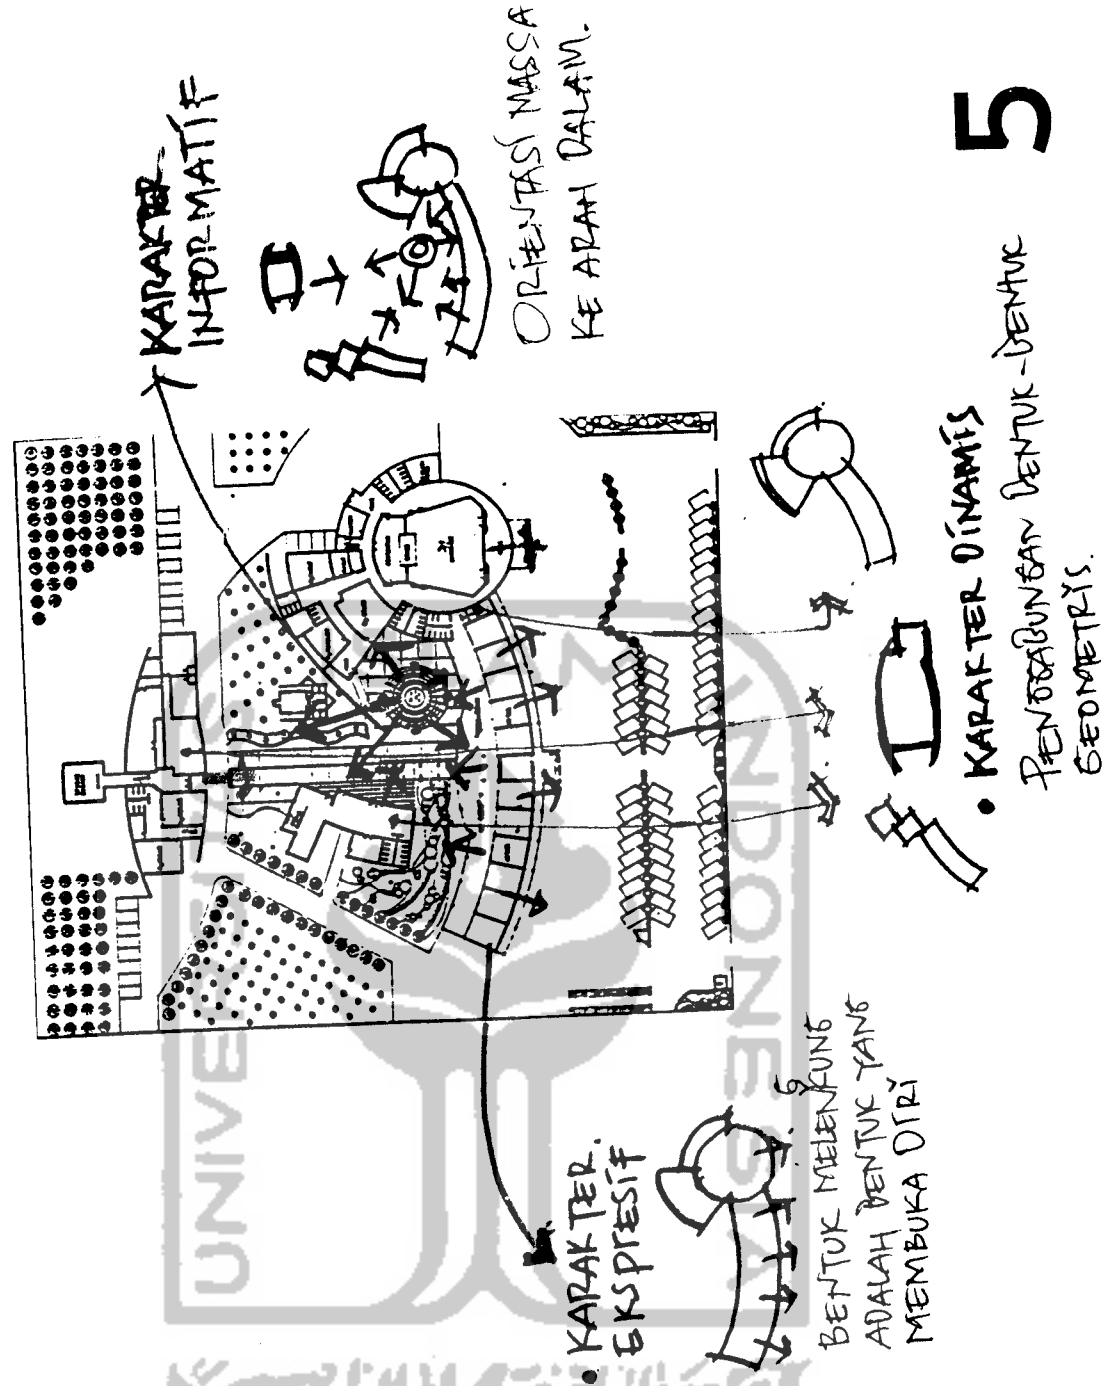 KARAKTER
INFORMATIF
ORIENTASI MASSA
KE ARAH DALAM.
5
• KARAKTER DINAMIS
PENGGABUNGAN BENTUK-BENTUK
GEOMETRIS.
• KARAKTER
EKSPRESIF
BENTUK MELENKUNG
ADALAH BENTUK YANG
MEMBUKA DIRI
UNIVERSITAS
ISLAM
INDONESIA